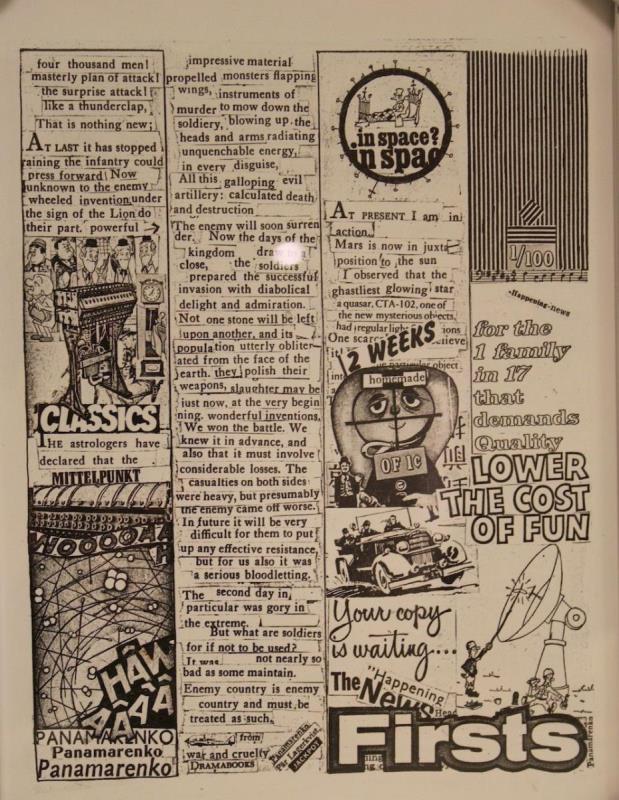 four thousand men!
masterly plan of attack!
the surprise attack!
like a thunderclap,
That is nothing new;
AT LAST it has stopped
raining the infantry could
press forward Now
unknown to the enemy
wheeled invention under
the sign of the Lion do
their part. powerful
CLASSICS
THE astrologers have
declared that the
MITTELPUNKT
WOOOOAA
HÂW
ÂÂÂÂ
PANAMARENKO
Panamarenko
Panamarenko
impressive material
propelled monsters flapping
wings, instruments of
murder to mow down the
soldiery, blowing up the
heads and arms radiating
unquenchable energy,
in every disguise,
All this galloping evil
artillery: calculated death
and destruction
The enemy will soon surren
der. Now the days of the
kingdom draw to a
close, the soldiers
prepared the successful
invasion with diabolical
delight and admiration.
Not one stone will be left
upon another, and its
population utterly obliter
ated from the face of the
earth. they polish their
weapons, slaughter may be
just now, at the very begin
ning. wonderful inventions,
We won the battle. We
knew it in advance, and
also that it must involve
considerable losses. The
casualties on both sides
were heavy, but presumably
the enemy came off worse.
In future it will be very
difficult for them to put
up any effective resistance,
but for us also it was
a serious bloodletting.
The second day in
particular was gory in
the extreme.
But what are soldiers
for if not to be used?
It was not nearly so
bad as some maintain.
Enemy country is enemy
country and must be
treated as such.
from
war and cruelty
DRAMABOOKS
Panamarenko
Pär Lagerkvist
JACKPOT
in space?
in spac
AT PRESENT I am in
action.
Mars is now in juxta
position to the sun
I observed that the
ghastliest glowing star
a quasar, CTA-102, one of
the new mysterious objects,
had regular light
One scarc
2 WEEKS
homemade
OF 1¢
Your copy
is waiting...
The "Happening
News
Firsts
1/100
Happening-news
for the
1 family
in 17
that
demands
Quality
LOWER
THE COST
OF FUN
Panamarenko